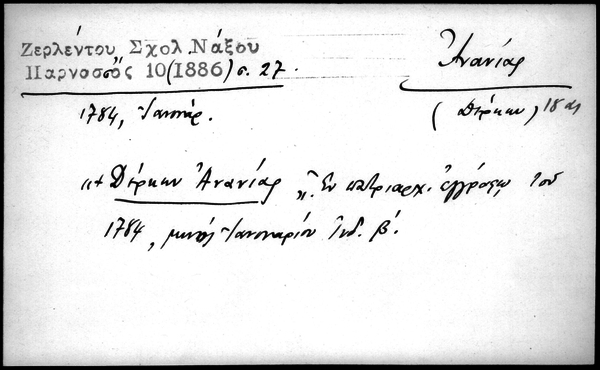 Ζερλέντου Σχολ. Νάξου
Παρνασσός 10 (1886) σ. 27.
Ἀνανίας
1784, Ἰανουάρ.
(Δέρκων) 18 αι
"+ Δέρκων Ἀνανίας". Ἐν πατριαρχ. ἐγγράφῳ τοῦ
1784, μηνὸς Ἰανουαρίου Ἰνδ. β΄.